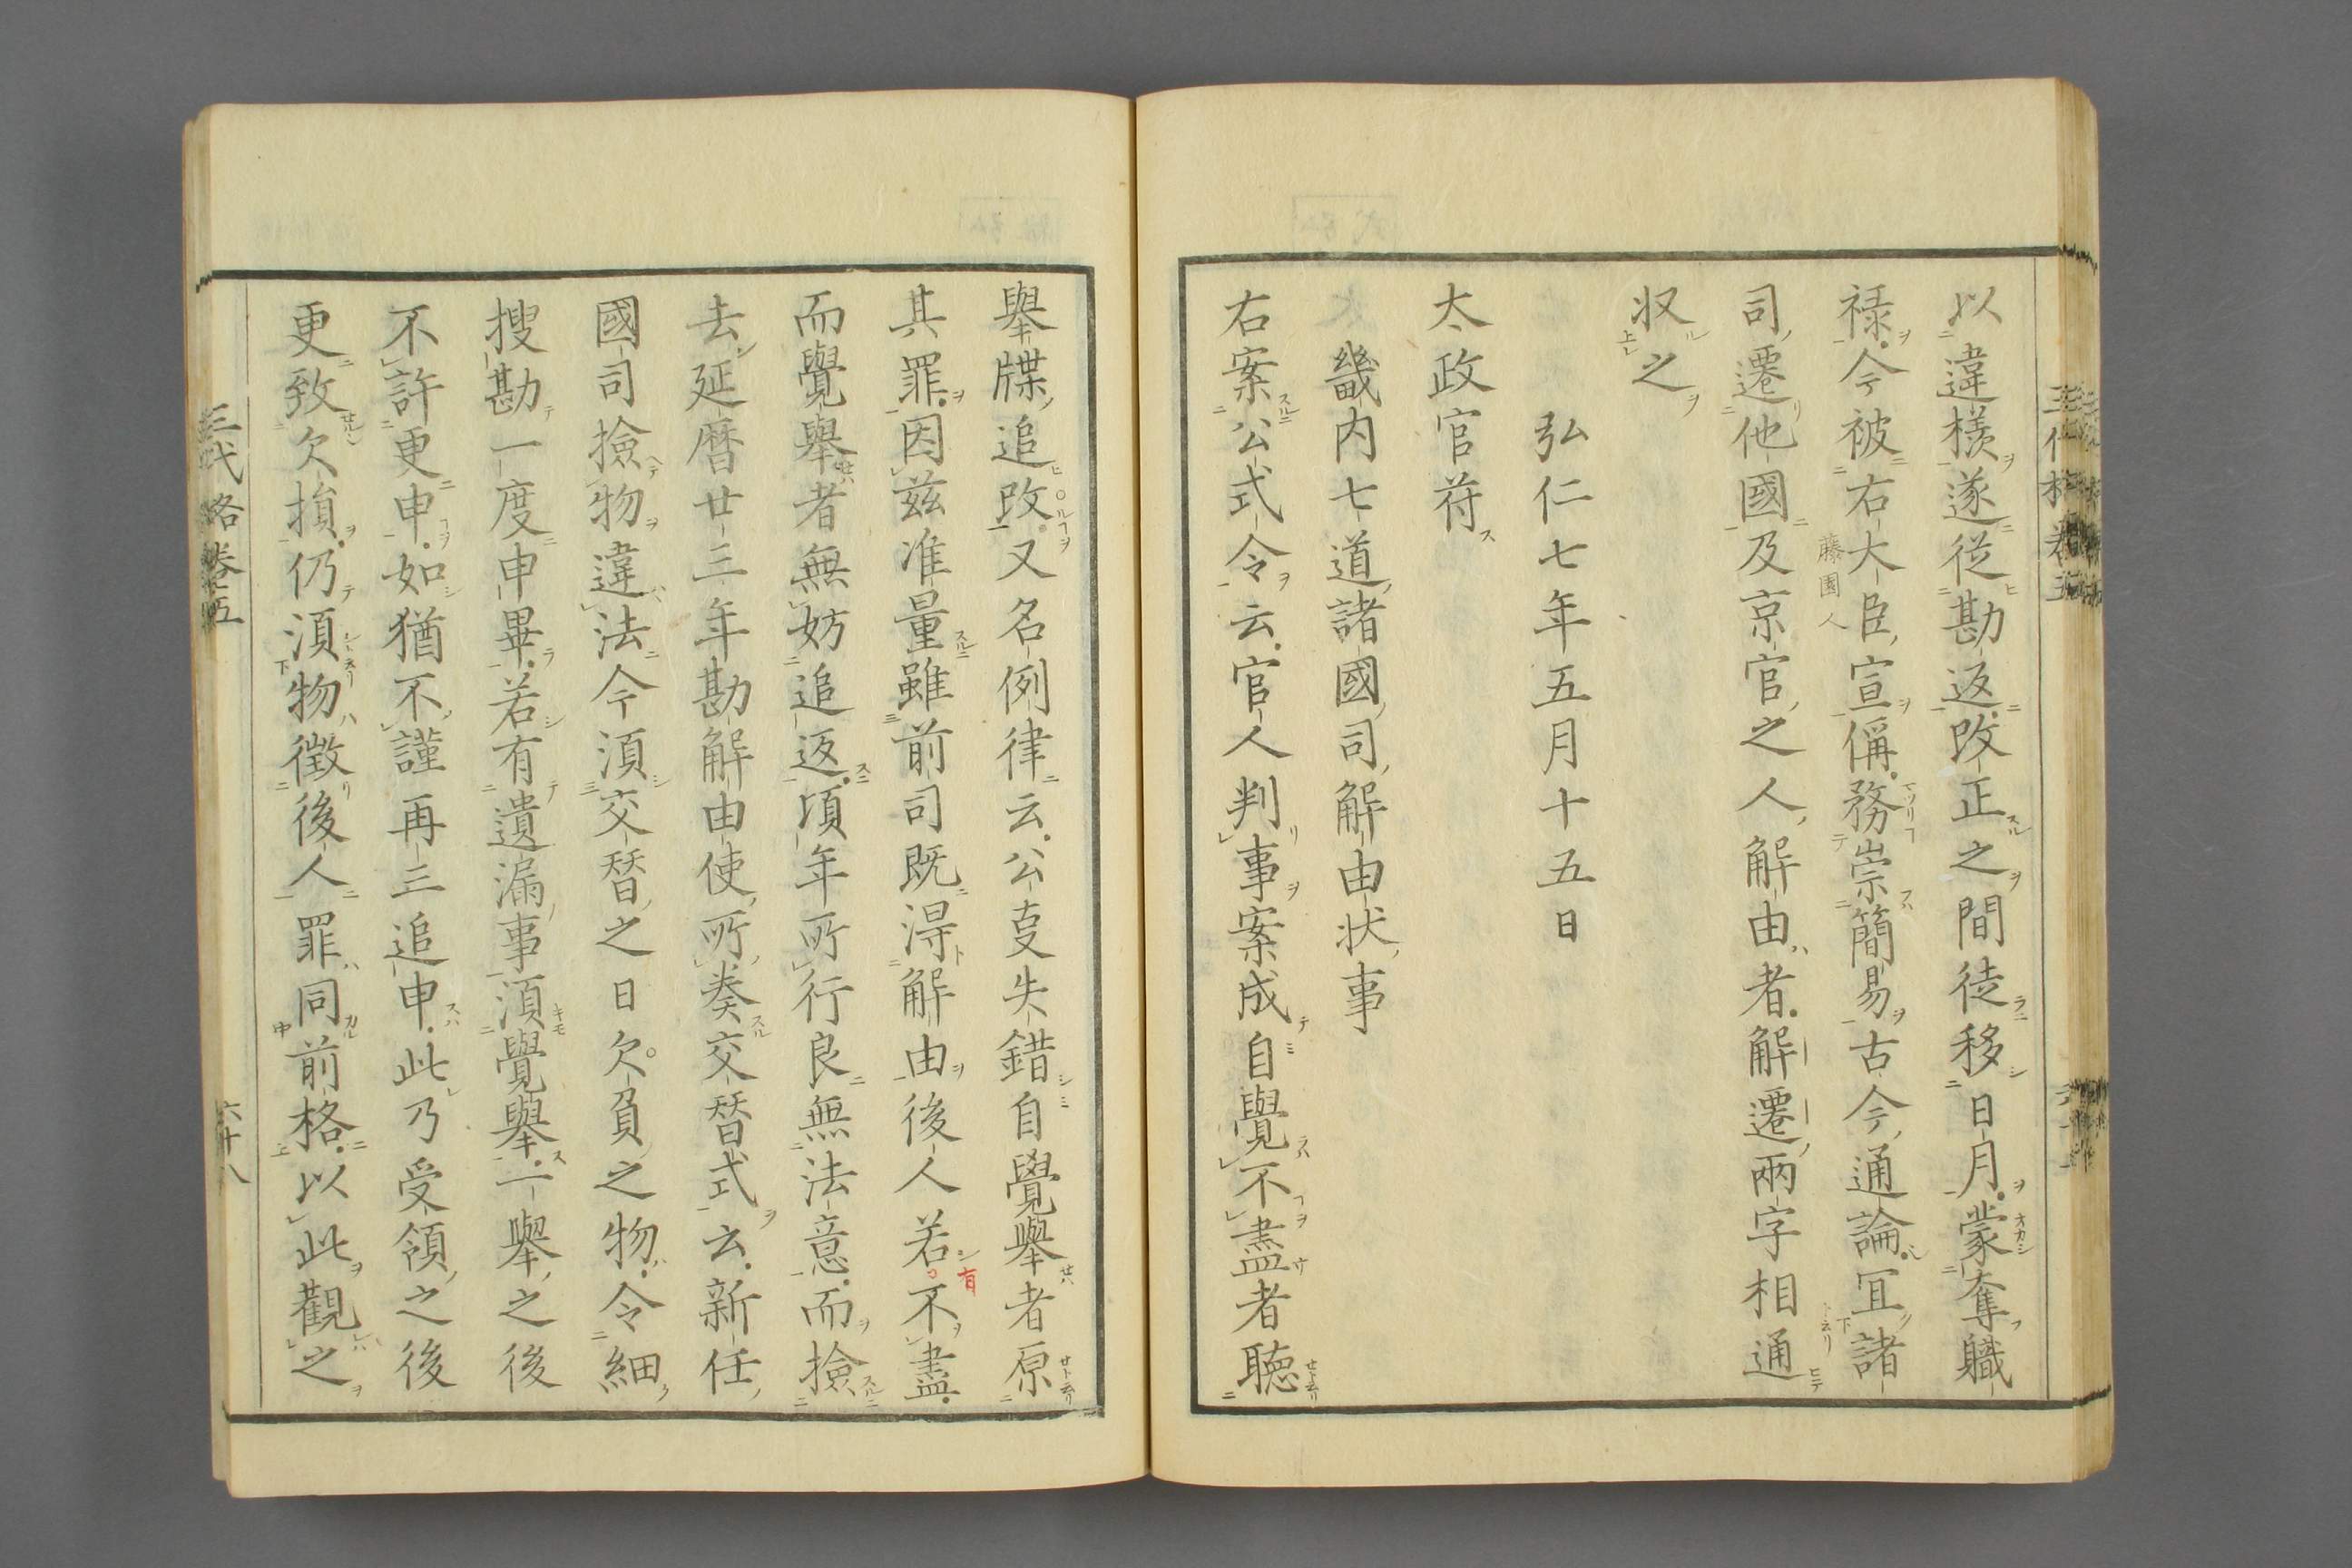 以違様遂従勘返改正之間徒移日月蒙奪職
禄今被右大臣宣偁務崇簡易古今通論冝諸
藤園人
司遷他國及京官之人解由者解遷兩字相通
収之
弘仁七年五月十五日
太政官符
畿内七道諸國司解由状事
右案公式令云官人判事案成自覺不盡者聴
舉牒追改又名例律云公叓失錯自覺舉者原
其罪因茲准量雖前司既淂解由後人若不盡
有
而覺舉者無妨追返頃年所行良無法意而撿
去延暦廿三年勘解由使所奏交替式云新任
國司撿物違法今湏交替之日欠負之物令細
搜勘一度申畢若有遺漏事湏覺舉一舉之後
不許更申如猶不謹再三追申此乃受領之後
更致欠損仍湏物徴後人罪同前格以此觀之
三代格巻五
六十八